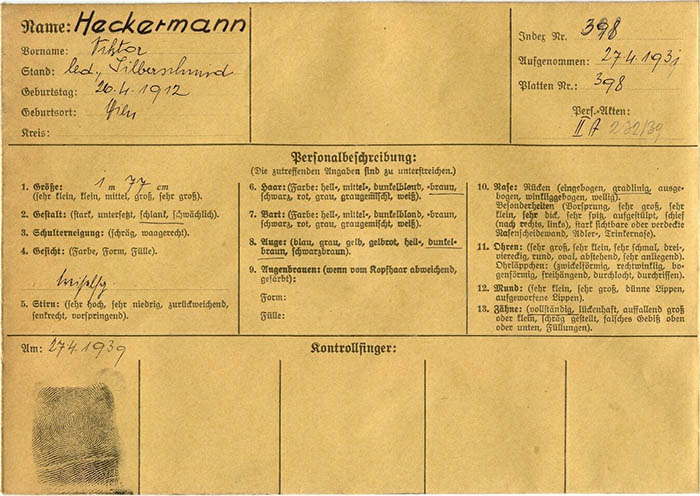 Name: Heckermann
Vorname: Viktor
Stand: led., Silberschmied
Geburtstag: 26.4.1912
Geburtsort:
Kreis:
Index Nr. 398
Aufgenommen: 27.4.1939
Platten Nr.: 398
Pers.-Akten:
II A 232/39
Personalbeschreibung:
(Die zutreffenden Angaben sind zu unterstreichen.)
1. Größe: 1 m 77 cm
(sehr klein, klein, mittel, groß, sehr groß).
2. Gestalt: (stark, untersetzt, schlank, schwächlich).
3. Schulterneigung: (schräg, waagerecht).
4. Gesicht: (Farbe, Form, Fülle).
5. Stirn: (sehr hoch, sehr niedrig, zurückweichend,
senkrecht, vorspringend).
6. Haar: (Farbe: hell-, mittel-, dunkelblond, -braun,
schwarz, rot, grau, graugemischt, weiß).
7. Bart: (Farbe: hell-, mittel-, dunkelblond, -braun,
schwarz, rot, grau, graugemischt, weiß).
8. Auge: (blau, grau, gelb, gelbrot, hell-, dunkel-
braun, schwarzbraun).
9. Augenbrauen: (wenn vom Kopfhaar abweichend,
gefärbt):
Form:
Fülle:
10. Nase: Rücken (eingebogen, gradlinig, ausge-
bogen, winkliggebogen, wellig).
Besonderheiten (Vorsprung, sehr groß, sehr
klein, sehr dick, sehr spitz, aufgestülpt, schief
(nach rechts, links), stark sichtbare oder verdeckte
Nasenscheidewand, Adler-, Trinkernase).
11. Ohren: (sehr groß, sehr klein, sehr schmal, drei-,
viereckig, rund, oval, abstehend, sehr anliegend).
Ohrläppchen: (zwickelförmig, rechtwinklig, bo-
genförmig, freihängend, durchlocht, durchrissen).
12. Mund: (sehr klein, sehr groß, dünne Lippen,
aufgeworfene Lippen).
13. Zähne: (vollständig, lückenhaft, auffallend groß
oder klein, schräg gestellt, falsches Gebiß oben
oder unten, Füllungen).
Am: 27.4.1939
Kontrollfinger: